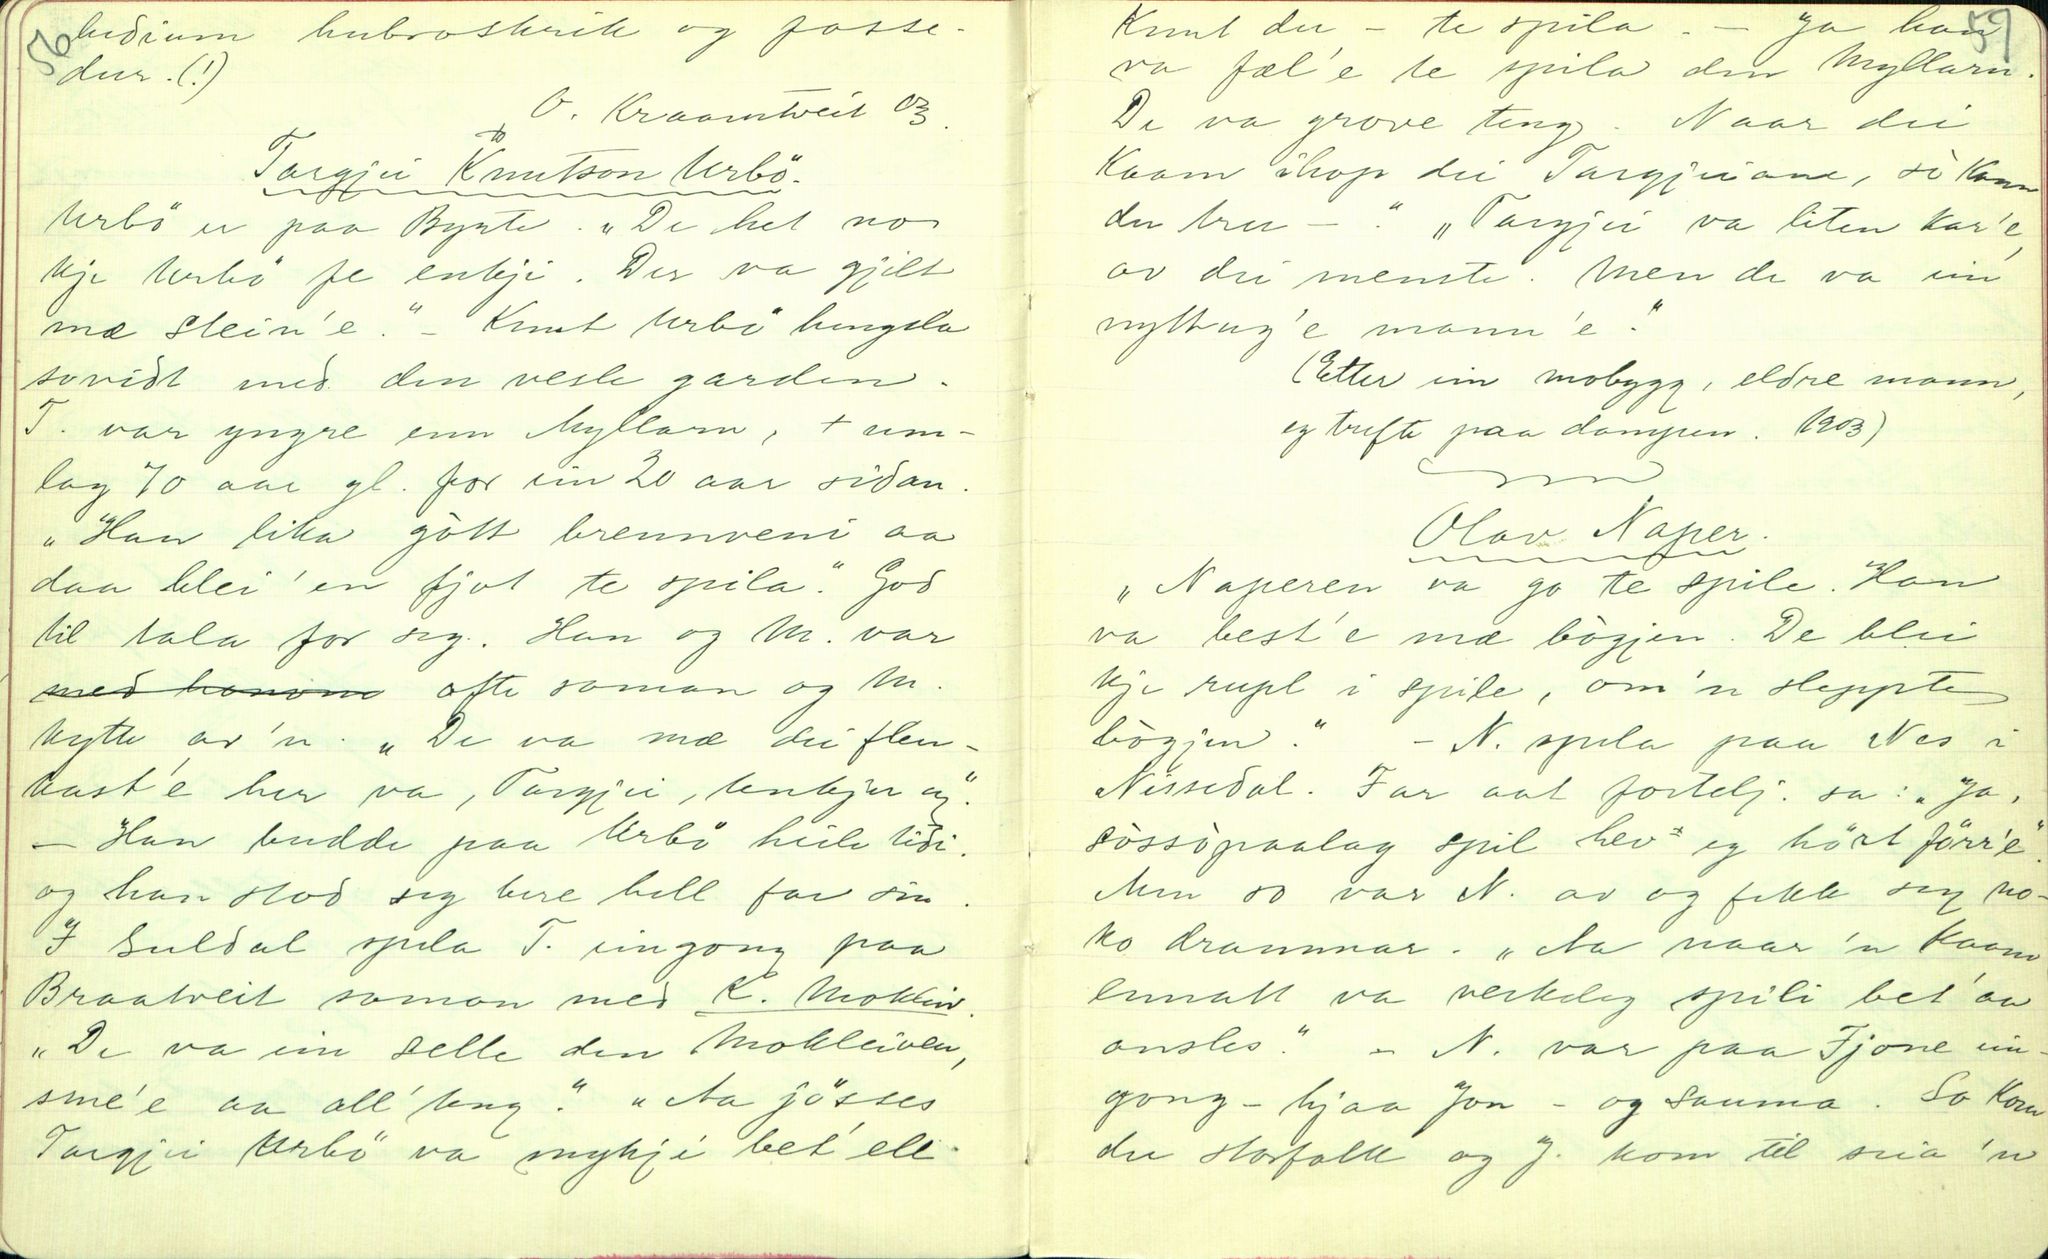 56
lidium hubroskrik og fosse-
dur. (!)
O. Kraamtveit 03.
Targjei Knutson Urbö.
Urbö er paa Byrte. „De het no
kje Urbö fe enkji. Der va gjilt
mæ stein'e." – Knut Urbö hengda
sovidt med den vesle garden.
T. var yngre enn Myllarn, + um-
lag 70 aar gl. for ein 20 aar sidan.
„Han lika gòtt brennveni aa
daa blei 'en fjot te spila." God
til tala for seg. Han og M. var
med honom ofte saman og M.
kytte av 'n. „De va mæ dei flen-
kast'e her va, Targjei, tenkjer eg".
– Han budde paa Urbö heile tidi.
og han stod seg bere hell far sin.
I Suldal spela T. eingong paa
Braatveit saman med K. Mokleiv.
„De va ein selle den Mokleiven,
sme'e aa all' ting". „Aa jösses
Targjei Urbö va mykji bet' ell
59
Knut du – te spila. – Ja han
va fæl'e te spila den Myllarn.
De va grove ting. Naar dei
kaam ihop dei Targjeiane, sò kann
du tru – ." „Targjei va liten kar'e,
av dei menste. Men de va ein
nyttug'e mann'e."
(Etter ein mobygg, eldre mann,
eg trefte paa dampen. 1903)
Olav Naper.
„Naperen va go te spile. Han
va best'e mæ bògjen. De blei
kje rupl i spile, om 'n sleppte
bògjen." – N. spela paa Nes i
Nissedal. Far aat fortelj. sa: „Ja,
sòssòpaalag spil hev eg hört förr'e".
Men so var N. av og fekk seg no-
ko drammar. „Aa naar 'n kaam
ennatt va verkeleg spili bet' aa
ansles." – N. var paa Fjone ein-
gong – hjaa Jon – og sauma. So kom
der storfolk og J. kom til seia 'n